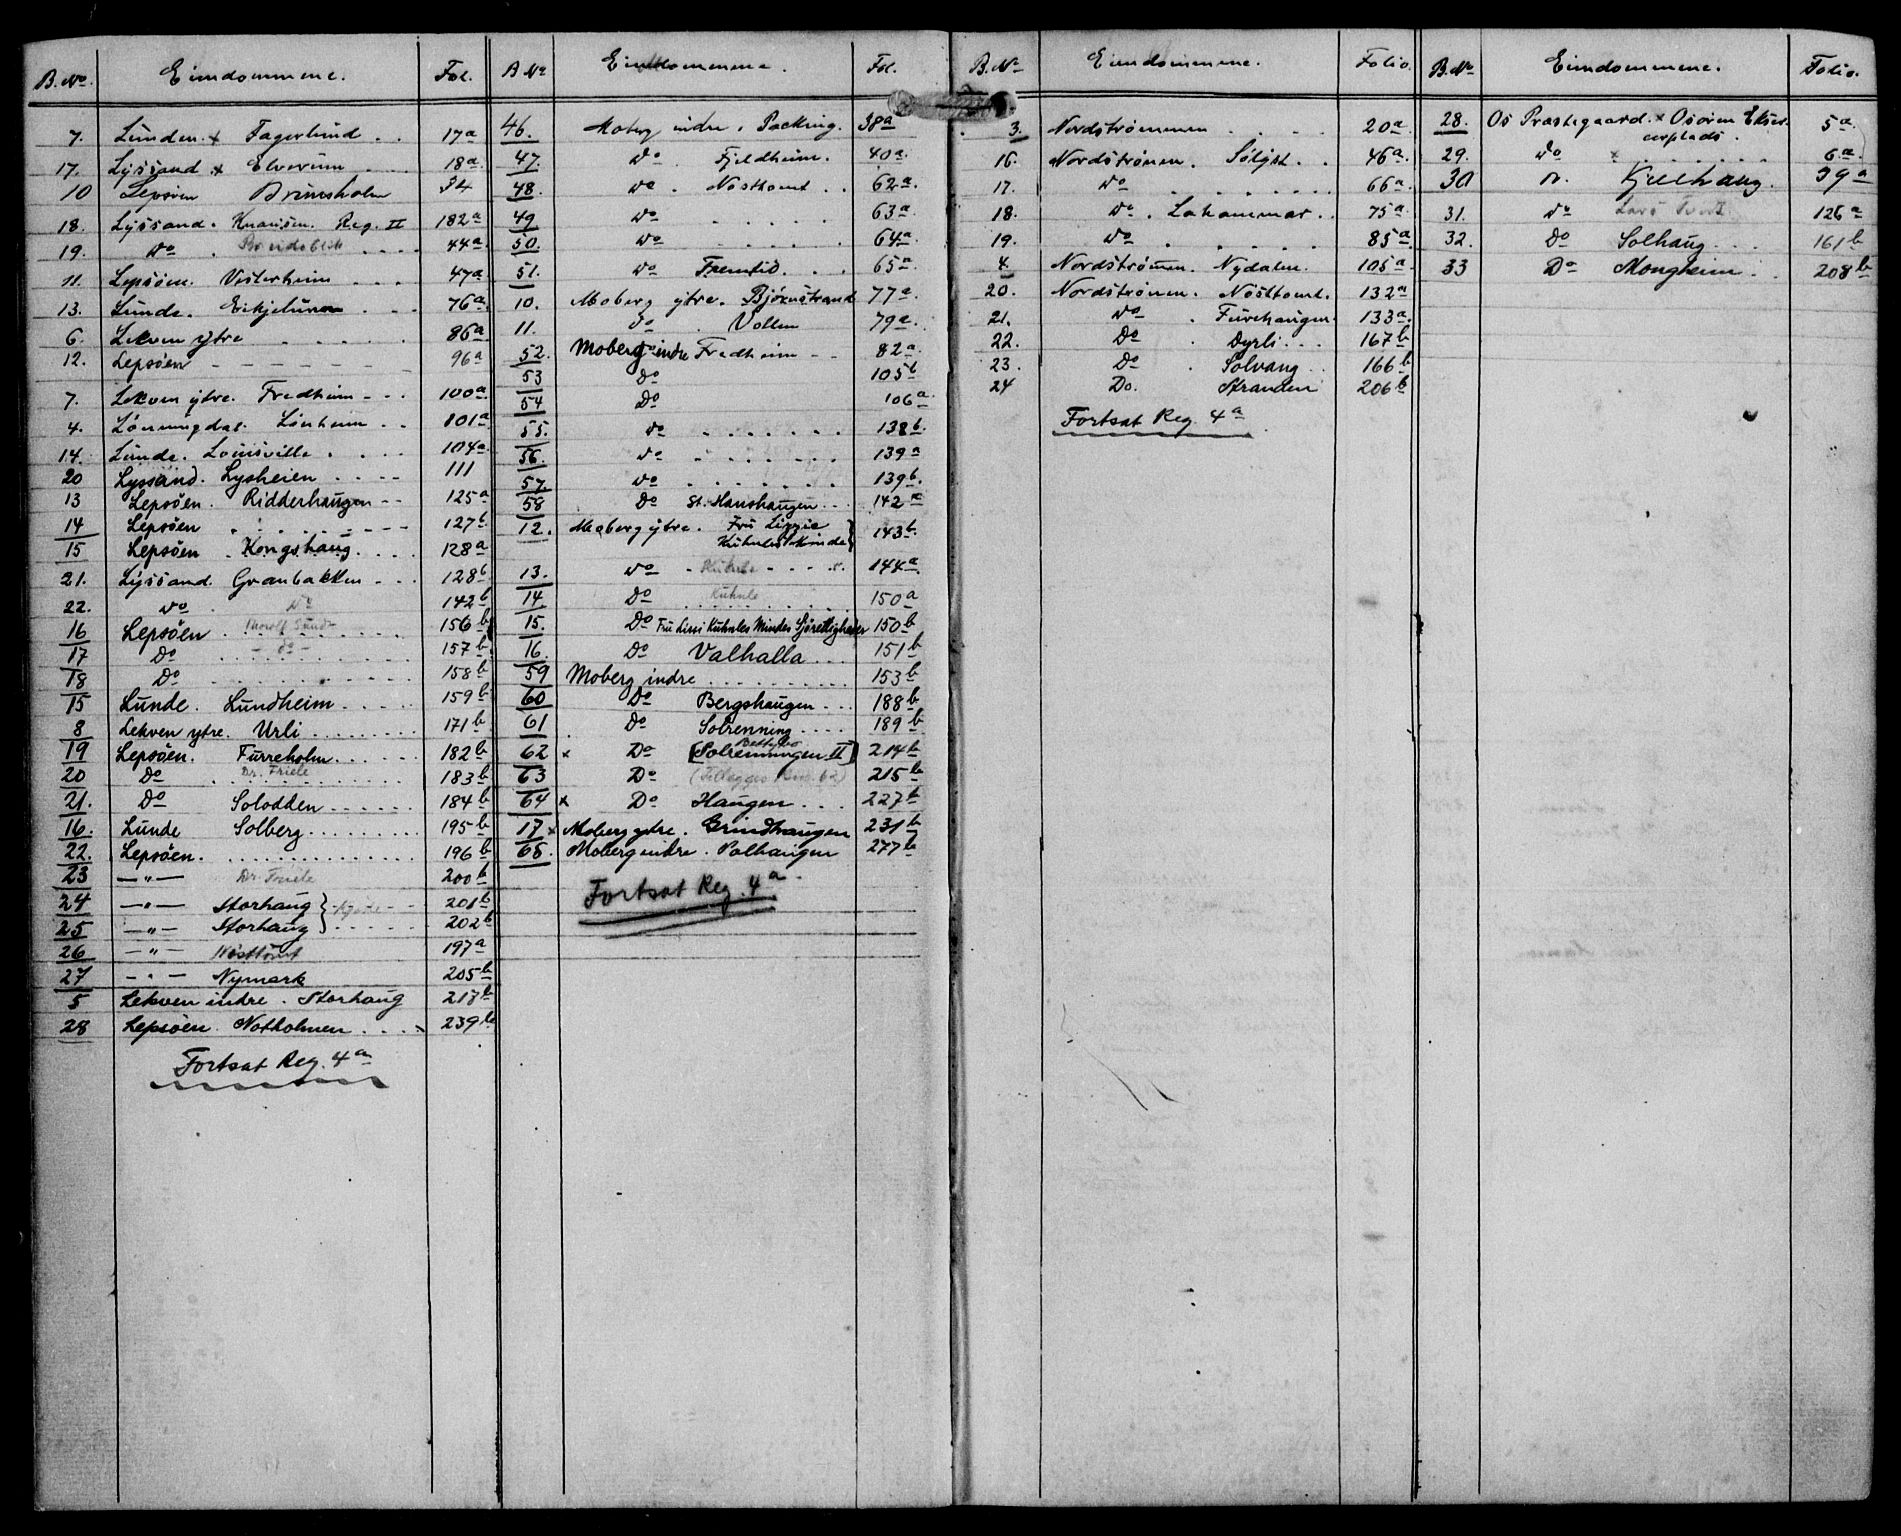 B. No. Eiendommene. Fol.
7. Lunden. x Fagerlund . . 17a
17. Lyssand x Elverum . . 18a
10 Lepsöen Brunsholm 34
18. Lyssand. Reg. II 182a
19. do . . . . 44a
11. Lepsöen. Vesterheim . . . 47a
13. Lunde. . . . 76a
6. Lekven ytre . . . . . 86a
12. Lepsöen - - - - - - 96a
7. Lekven ytre. Fredheim - - . 100a
4. Lönningdal. Lönheim . . 101a
14. Lunde. Louisville . . . . 104a
20 Lyssand. Lysheim . . . . 111
13 Lepsöen. Ridderhaugen - - 125a
14 Lepsöen . . . . . . . 127b
15 Lepsöen . Kongshaug . . . . 128a
21. Lyssand. Granbakken - . . 128b
22. do . do 142b
16 Lepsöen . . . . . . . . 156b
17 Do - do - . . . . . . 157b
18 Do . . . . . . . . 158b
15 Lunde. Lundheim . . . . . 159b
8 Lekven ytre. Urli . . . . . . . 171b
19 Lepsöen. Furreholm . . . . . . 182b
20 Do Dr. Friele . . . . . . . 183b
21. Do Solodden . . . . . . 184b
16. Lunde Solberg . . . . . . . . 195b
22. Lepsöen. . . . . . . . . . . . . . . 196b
23 — " — Dr. Friele 200b
24 — " — Storhaug } 201b
25 — " — Storhaug } . . . . . 202b
26 — " — Nösttomt 197a
27 — " — Nymark 205b
5 Lekven indre . Storhaug 217b
28 Lepsöen. Notholmen . . . . 239b
Fortsat Reg. 4a
B No Eiendommene. Fol.
46. Moberg indre. 38a
47. do . Fjeldheim. 40a
48. do . Nösttomt . . 62a
49 do . . . . . 63a
50. do . . . . . 64a
51. do Fremtid. . . 65a
10. Moberg ytre. Björnstrand 77a
11. do . Vollen 79a
52. Moberg indre Fredheim - - 82a
53 Do 105b
54 Do 106a
55. do . . . . . . . 138b
56. do . . . . . . . 139a
57. do . . . . . . . 139b
58 Do St. Hanshaugen . . . 142a
12. Moberg ytre. Fru Lizzie
Kuhnles Minde } 143b
13. do - Kuhnle - - - - 144a
14. Do Kuhnle . . . . . 150a
15. Do Fru Lissi Kuhnles Mindes Sjörettigheder 150b
16. Do Valhalla . . . 151b
59 Moberg indre . . . . . . . . . . . 153b
60 Do Bergshaugen . . . 188b
61 Do Solrenning . . . . 189b
62 x Do [Solrenningen II] 214b
63 Do 215b
64 x Do Haugen . . . . 227b
17 x Moberg ytre. Grindhaugen 231b
65. Moberg indre. Solhaugen 277b
Fortsat Reg. 4a
B. No Eiendommene. Folio.
3. Nordströnen . . . . 20a
16. Nordströnen. . . 46a
17. do . . . . . . . 66a
18. do . . . 75a
19. do . . . . . . 85a
4. Nordströnen. Nydalen. 105a
20. Nordströnen. Nösttomt. 132a
21. do . Furehaugen. 133a
22. Do . Dyrli . . . 167b
23. Do . Solvang . . 166b
24 Do. Stranden 206b
Fortsat Reg. 4a
B. No Eiendommene. Folio.
28. Os Præstegaard. x Osören Ekser-
cerplads. 5a
29. do x . . . . . . . 6a
30 Kjelhaug. 39a
31. do 126a
32. Do Solhaug . . . 161b
33 Do Mongheim . . 208b